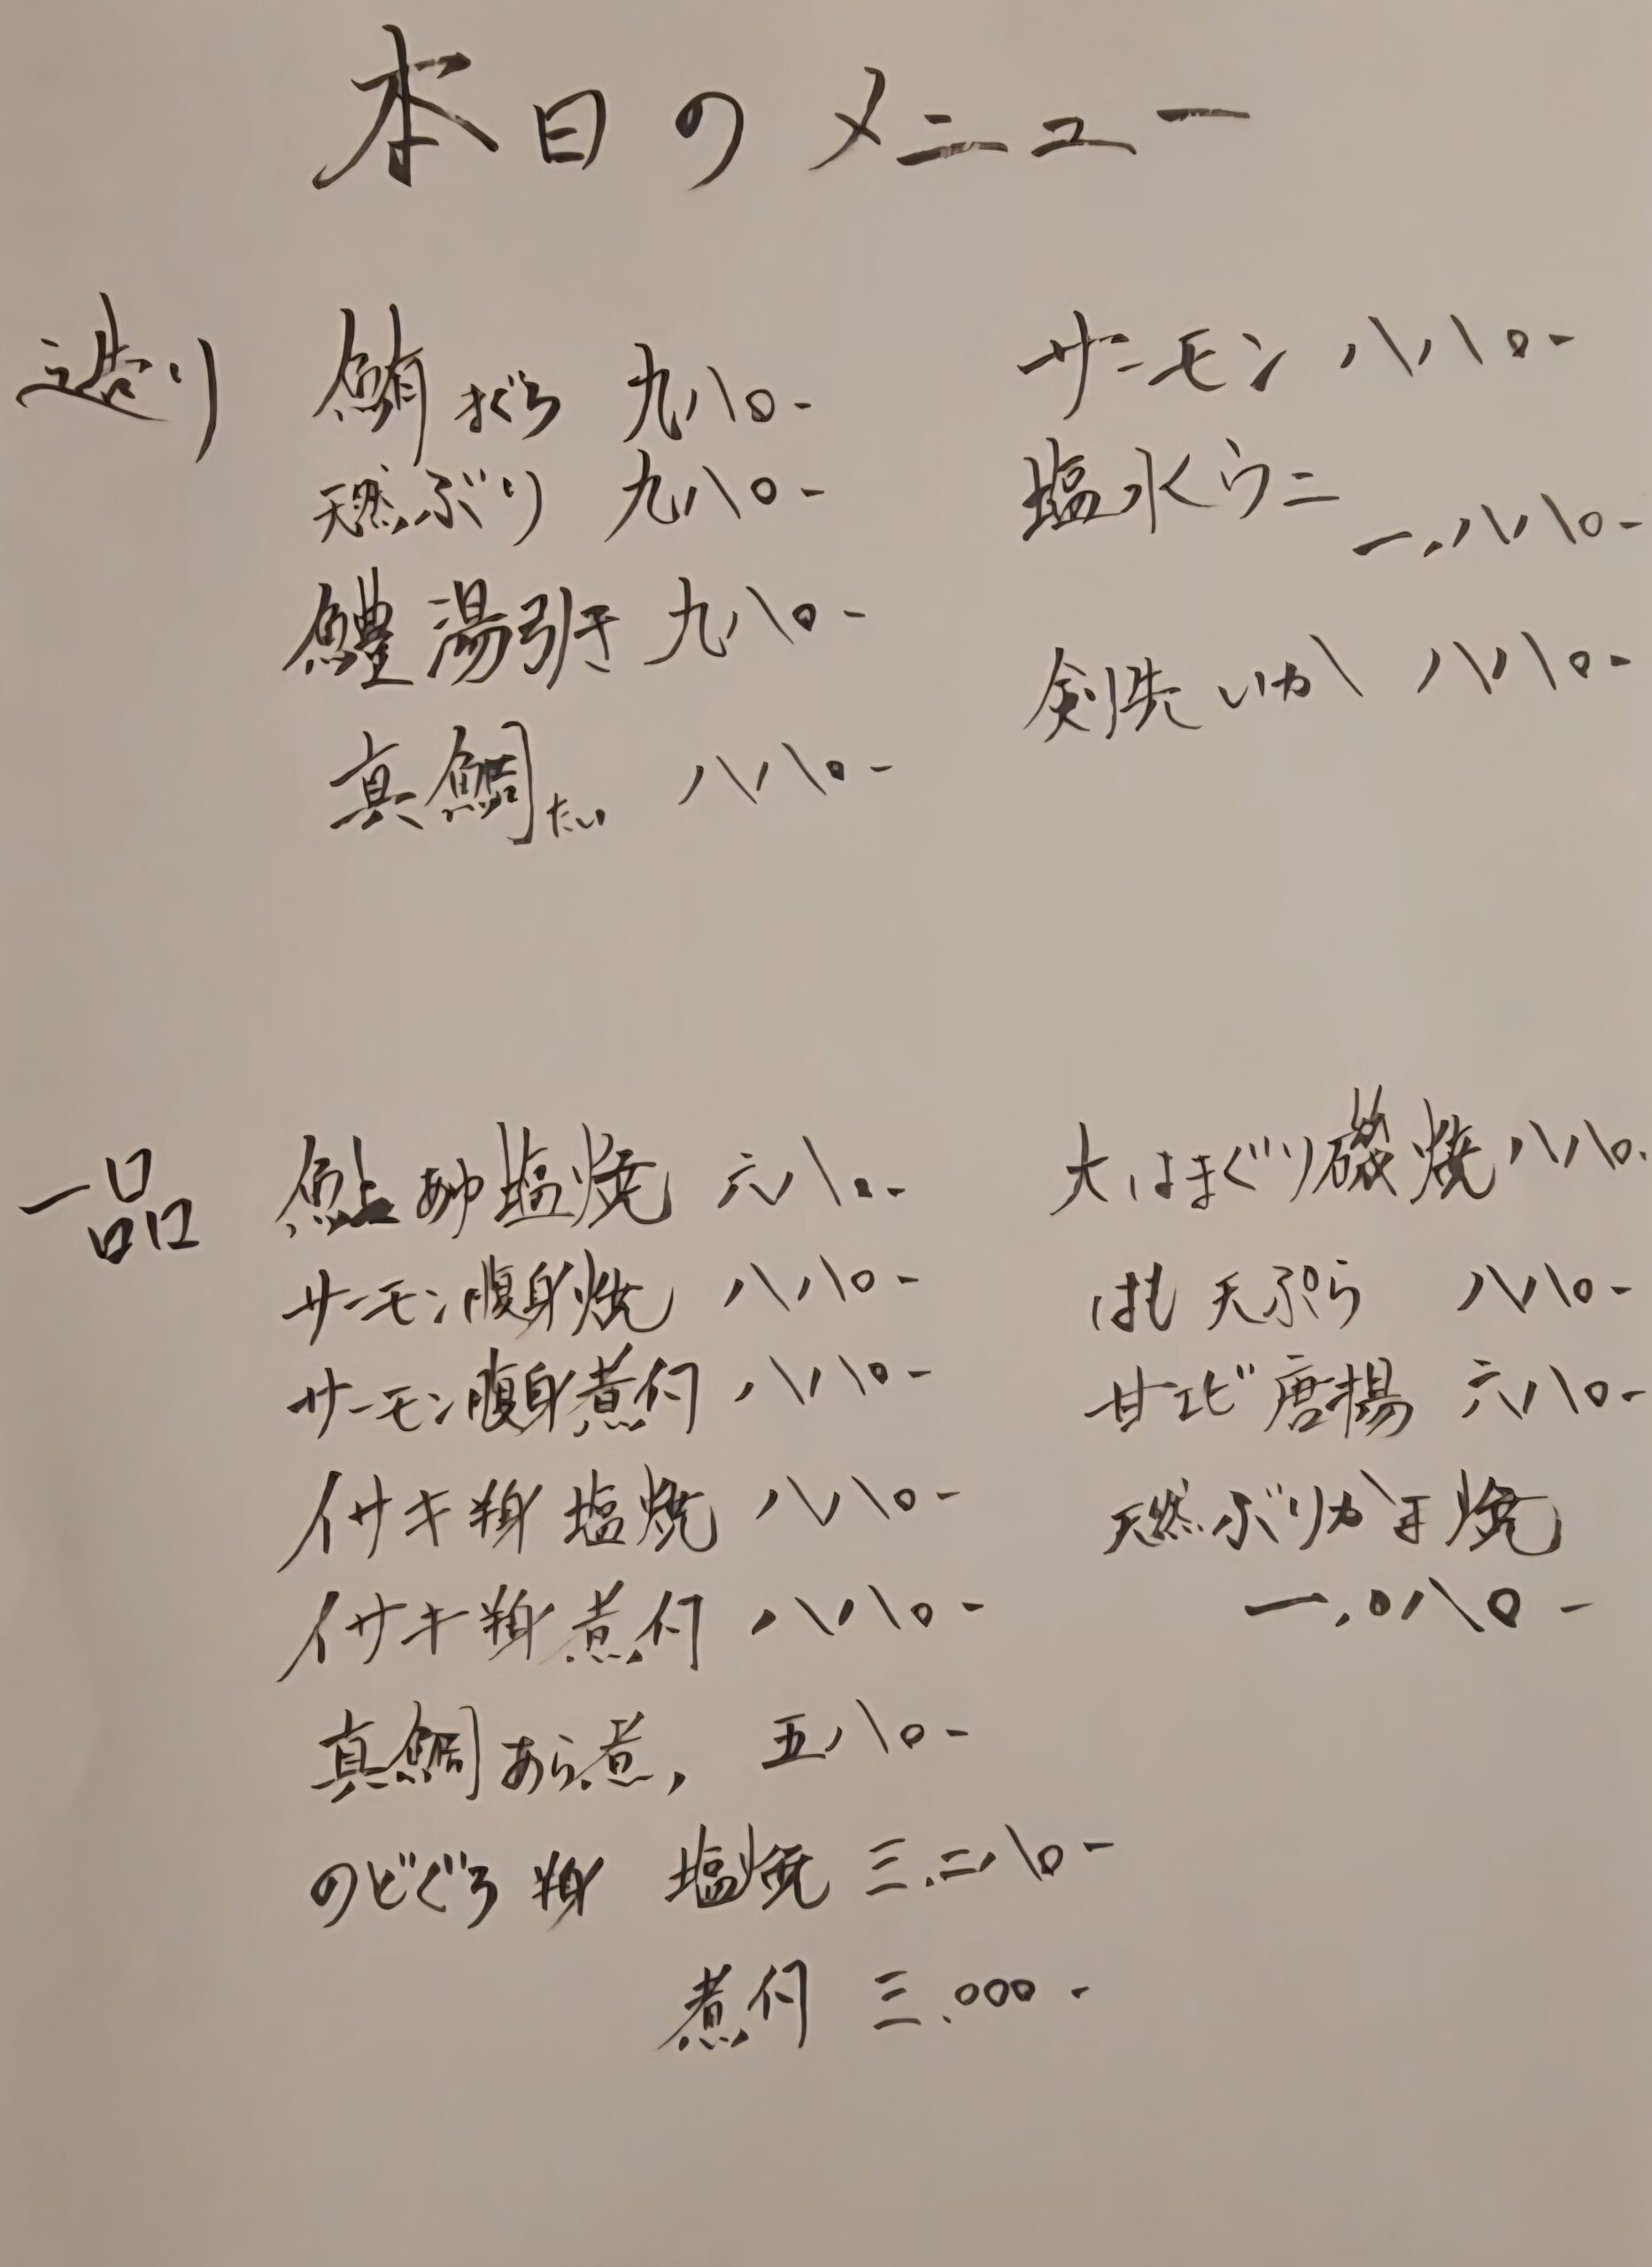 本日のメニュー
造り
鮪まぐろ 九八〇-
天然ぶり 九八〇-
鱧湯引き 九八〇-
真鯛たい 八八〇-
サーモン 八八〇-
塩水ウニ
一.八八〇-
剣先いか 八八〇-
一品
鮎あゆ塩焼 六八〇-
サーモン腹身焼 八八〇-
サーモン腹身煮付 八八〇-
イサキ半身塩焼 八八〇-
イサキ半身煮付 八八〇-
真鯛あら煮, 五八〇-
のどぐろ半身 塩焼 三.二八〇-
煮付 三.〇〇〇-
大はまぐり磯焼 八八〇.
はも天ぷら 八八〇-
甘エビ唐揚 六八〇-
天然ぶりかま焼
一.〇八〇-